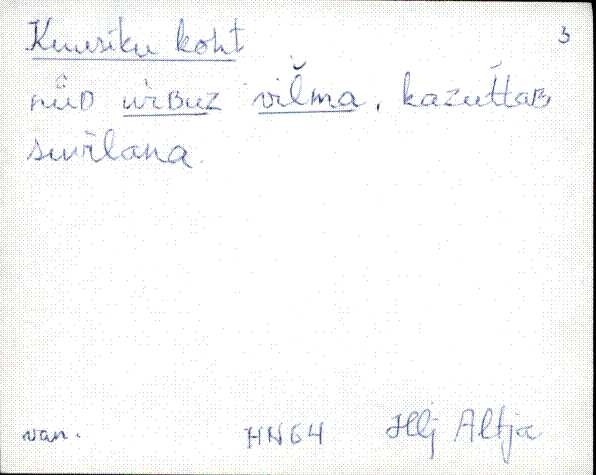 Kuusiku koht 3
nüD ùrBuz vil̆ma, kazut́taB
suvìlana.
van. HN64 Hlj Altja